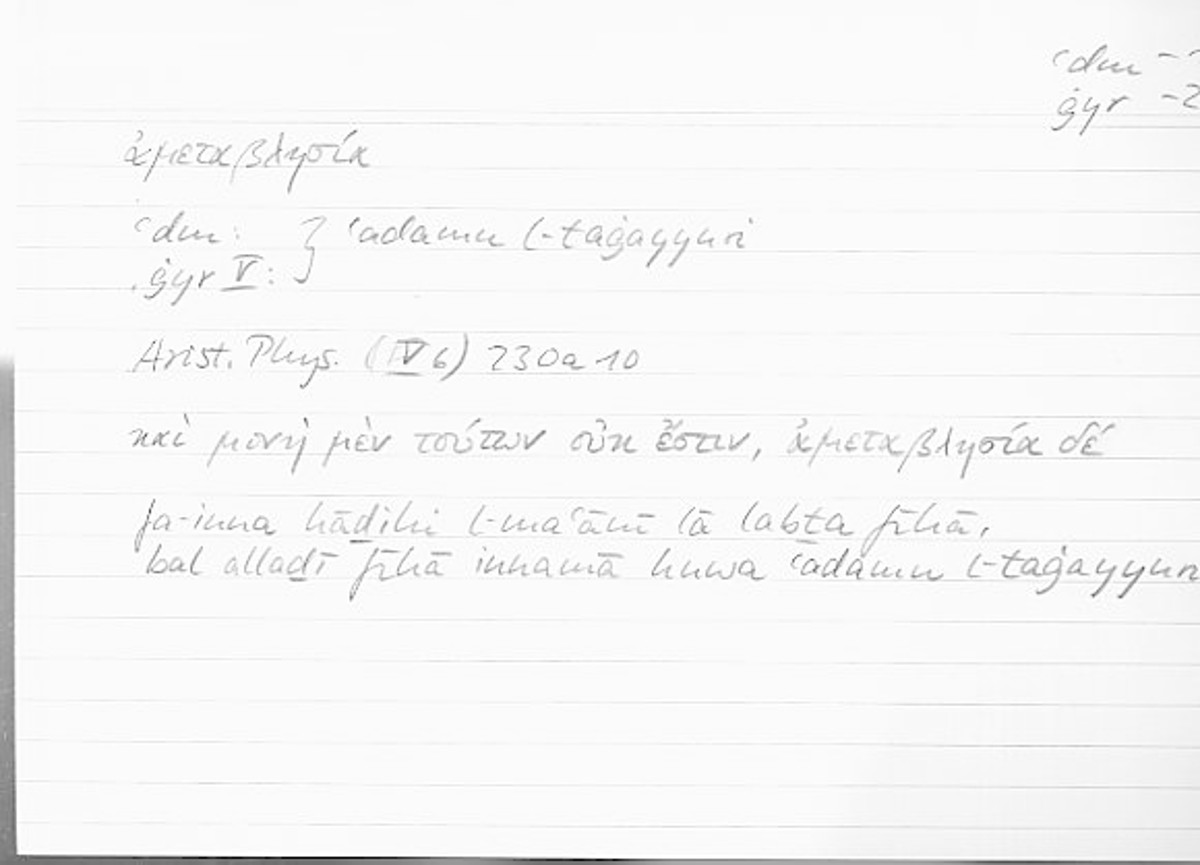 ʿdm -
ġyr -2
ἀμεταβλησία
ʿdm: } ʿadamu l-taġayyuri
ġyr V:
Arist. Phys. (V 6) 230a10
καὶ μονὴ μὲν τούτων οὐκ ἔστιν, ἀμεταβλησία δέ
fa-inna hāḏihi l-maʿānī lā labṯa fīhā,
bal allaḏī fīhā innamā huwa ʿadamu l-taġayyuri